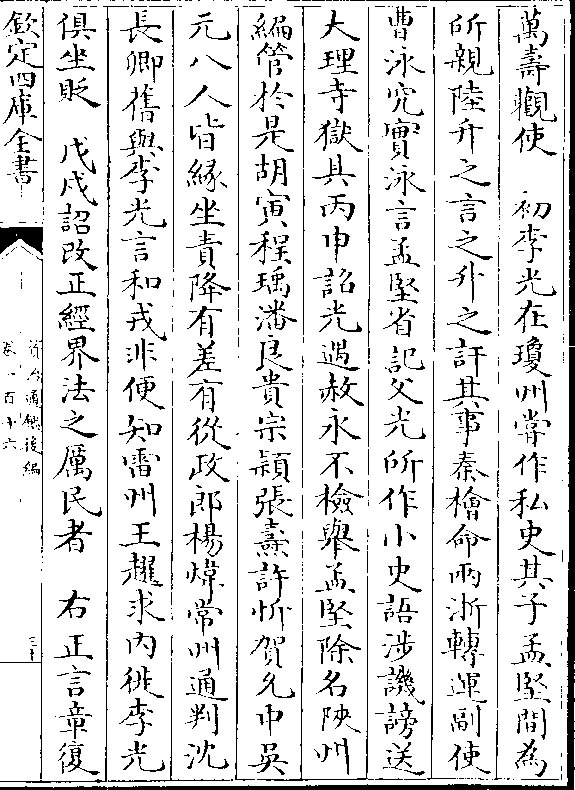 萬壽觀使　初李光在瓊州嘗作私史其子孟堅間為
所親陸升之言之升之訐其事秦檜命兩浙轉運副使
曹泳究實泳言孟堅省記父光所作小史語涉譏謗送
大理寺獄具丙申詔光遇赦永不檢舉孟堅除名陜州
編管於是胡寅程瑀潘良貴宗穎張燾許忻賀允中吳
元八人皆緣坐責降有差有從政郎楊煒常州通判沈
長卿舊與李光言和戎非便知雷州王趯求內徙李光
俱坐貶　戊戌詔改正經界法之厲民者　右正言章復
欽定四庫全書
資治通鑑後編
卷一百十六
三十